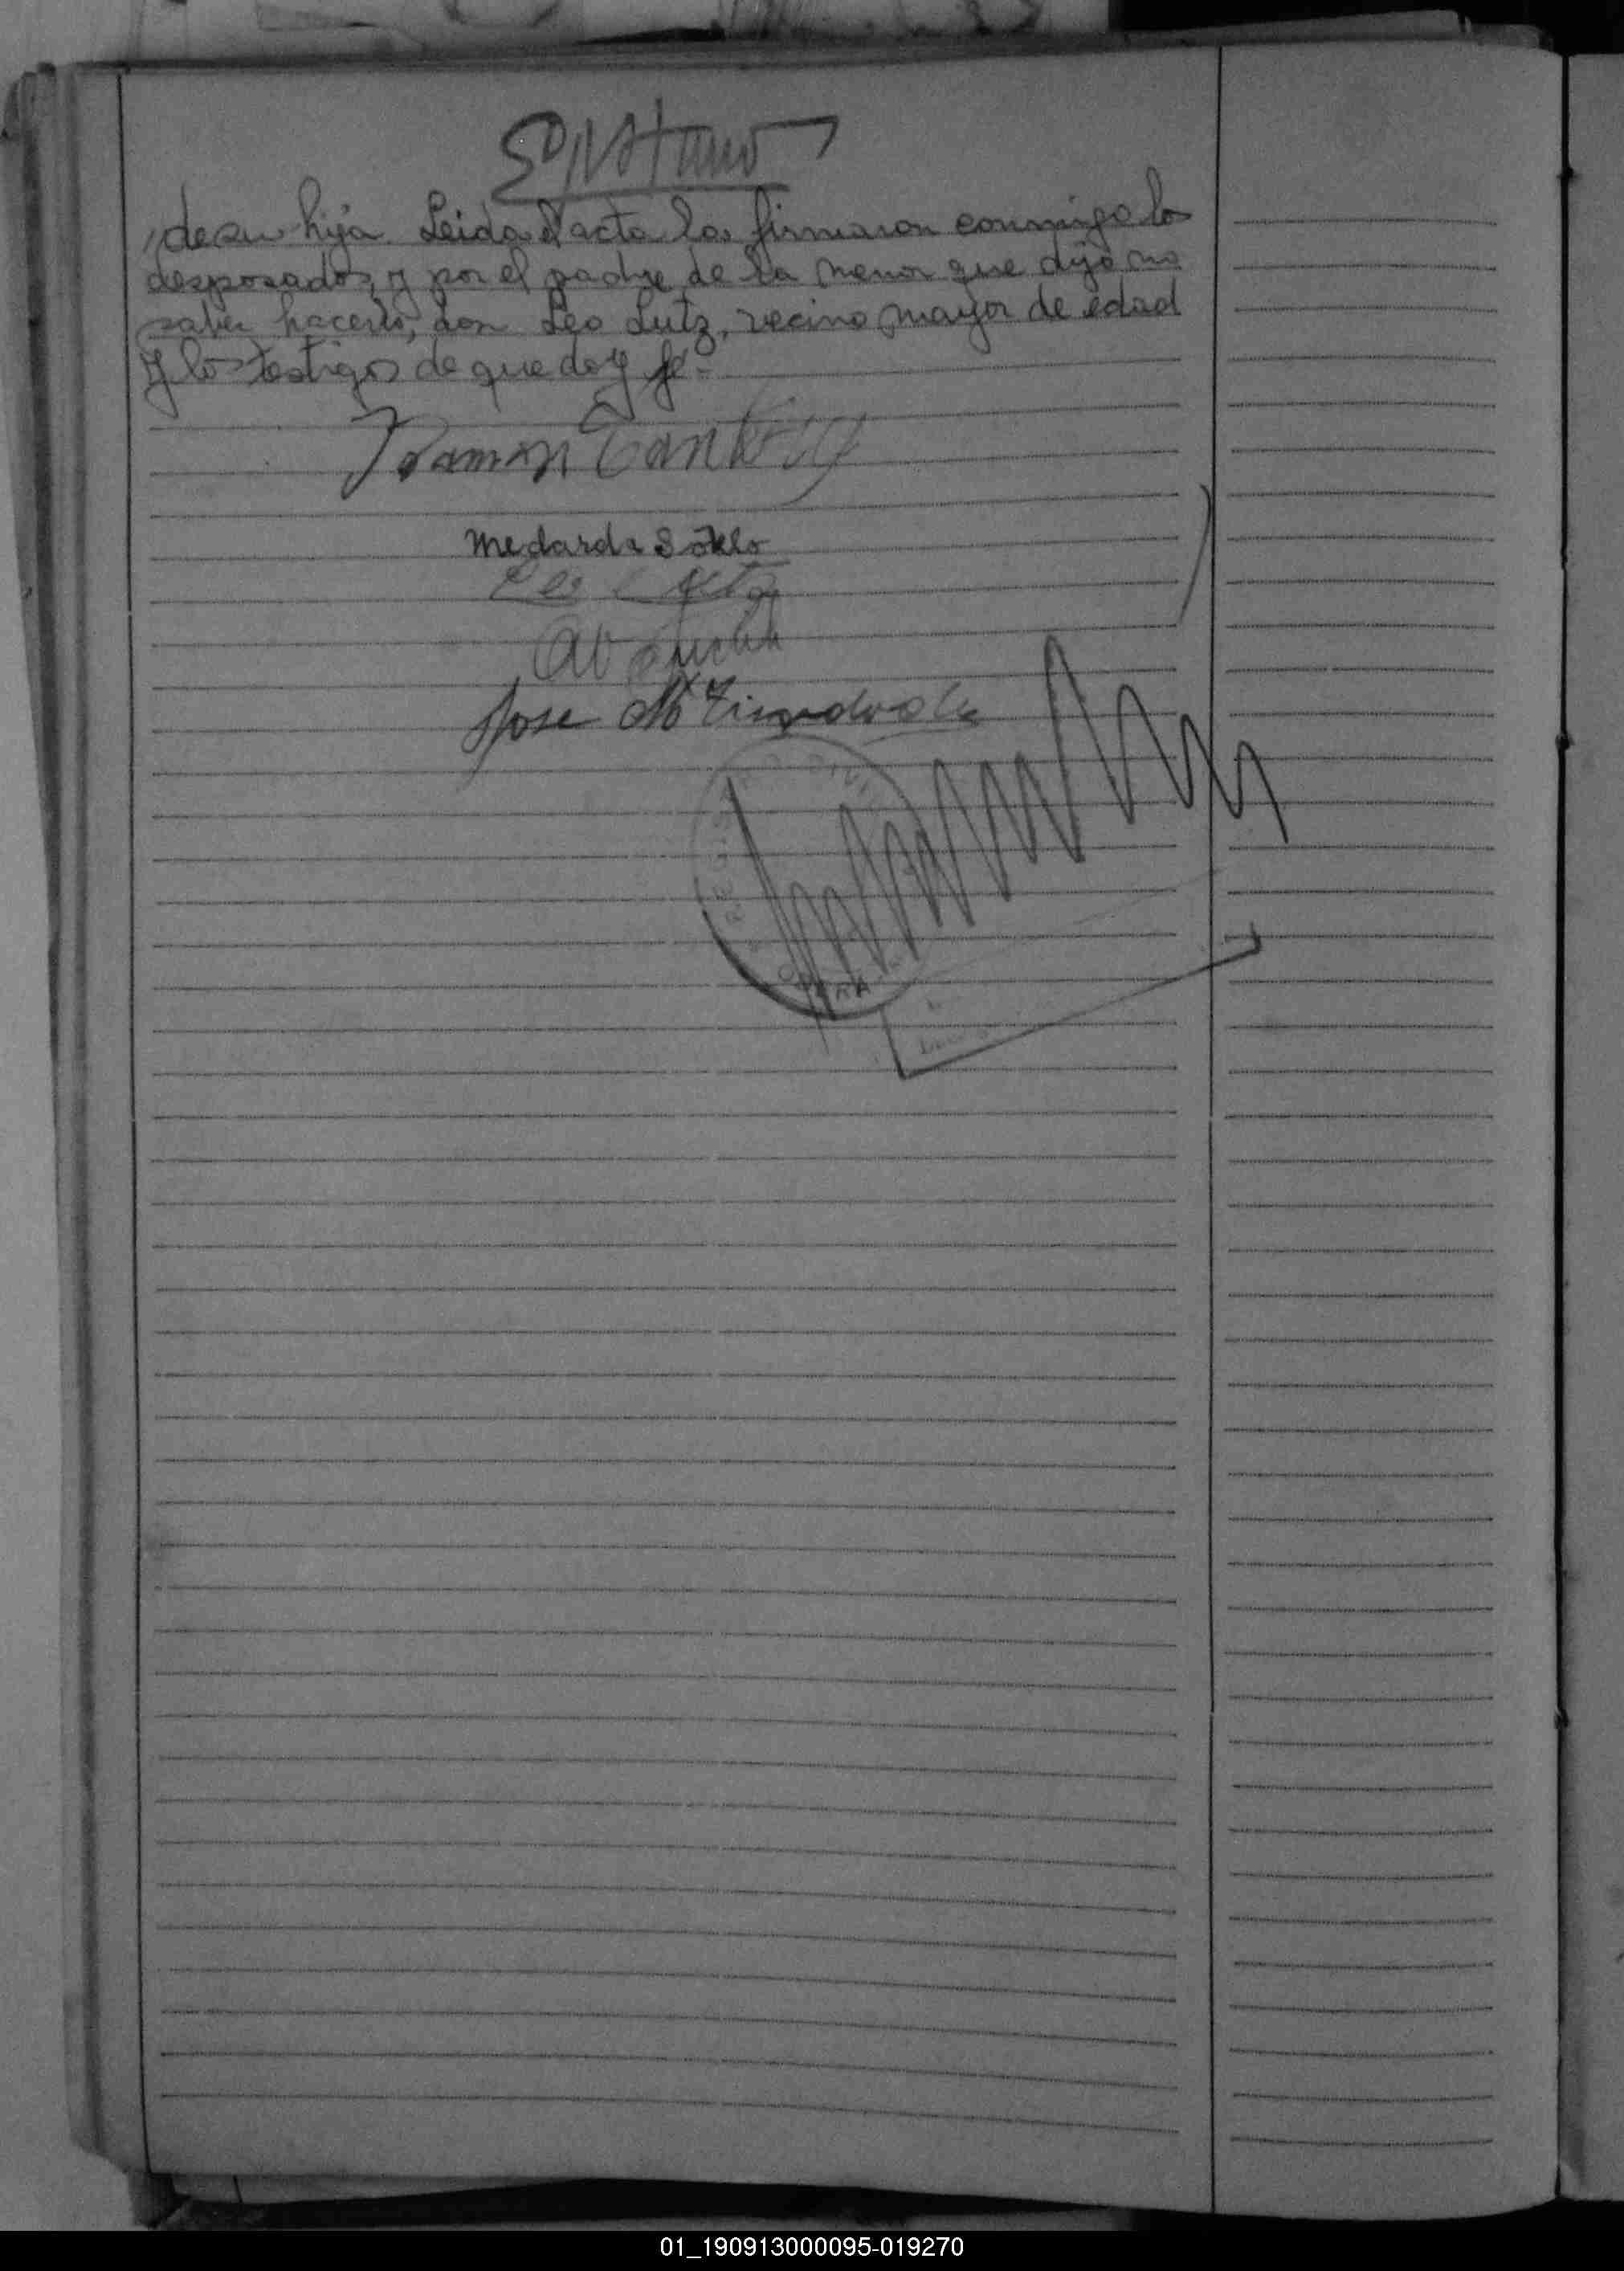 de su hija. Leida el acta la firmaron conmigo los
desposados, y por el padre de la menor que dijo no
saber hacerlo, don Leo Lutz, vecino, mayor de edad
y los testigos de que doy fe.-
Ramon
Medarda Sotelo
Leo Lutz
Jose M
OBERA
01_190913000095-019270